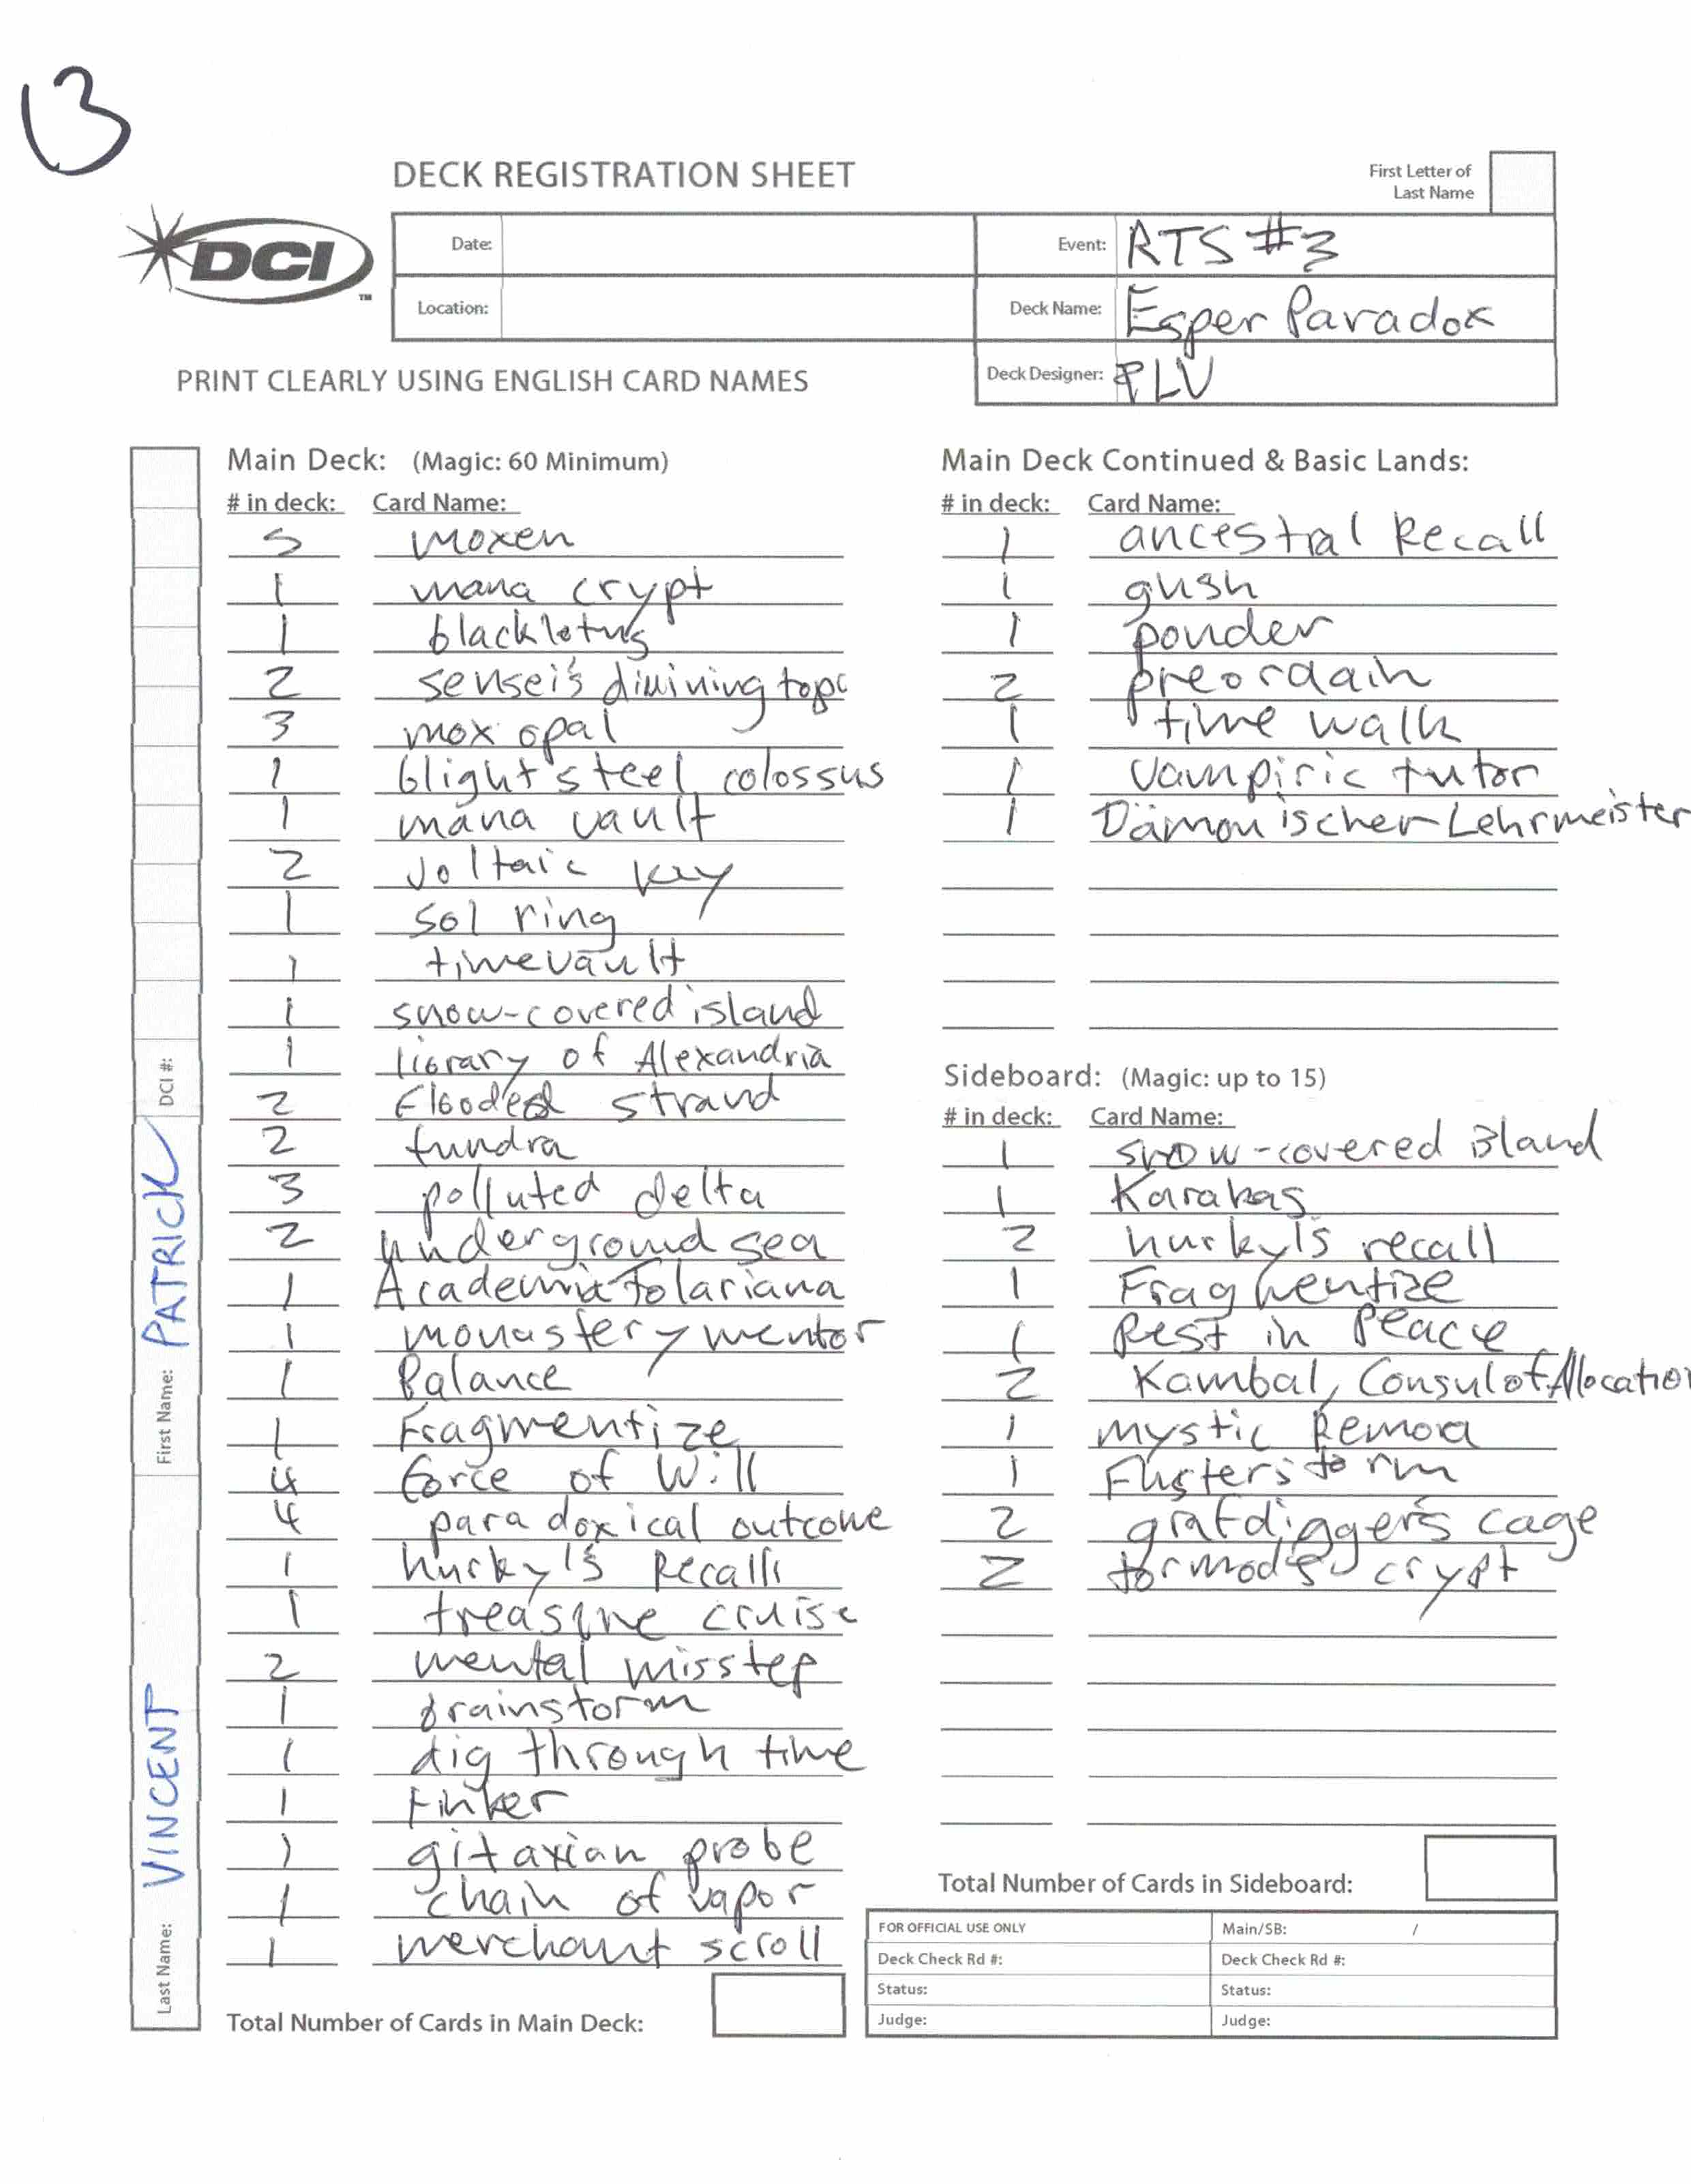 13
DECK REGISTRATION SHEET
First Letter of
Last Name
DCI
TM
Date:
Event: RTS #3
Location:
Deck Name: Esper Paradox
PRINT CLEARLY USING ENGLISH CARD NAMES
Deck Designer: PLV
Main Deck: (Magic: 60 Minimum)
# in deck: Card Name:
5 moxen
1 mana crypt
1 black lotus
2 sensei's divining top
3 mox opal
1 blightsteel colossus
1 mana vault
2 voltaic key
1 sol ring
1 time vault
1 snow-covered island
1 library of Alexandria
2 Flooded strand
2 tundra
3 polluted delta
2 underground sea
1 Academia Tolariana
1 monastery mentor
1 Balance
1 Fragmentize
4 force of Will
4 paradoxical outcome
1 hurkyl's Recall
1 treasure cruise
2 mental misstep
1 brainstorm
1 dig through time
1 Tinker
1 gitaxian probe
1 chain of vapor
1 merchant scroll
Total Number of Cards in Main Deck:
Main Deck Continued & Basic Lands:
# in deck: Card Name:
1 ancestral Recall
1 gush
1 ponder
2 preordain
1 time walk
1 vampiric tutor
1 Dämonischer Lehrmeister
Sideboard: (Magic: up to 15)
# in deck: Card Name:
1 snow-covered island
1 Karakas
2 hurkyl's recall
1 Fragmentize
1 Rest in Peace
2 Kambal, Consul of Allocation
1 mystic Remora
1 Flusterstorm
2 grafdigger's cage
2 tormod's crypt
Total Number of Cards in Sideboard:
FOR OFFICIAL USE ONLY
Main/SB: /
Deck Check Rd #:
Deck Check Rd #:
Status:
Status:
Judge:
Judge:
Last Name: VINCENT
First Name: PATRICK
DCI #: